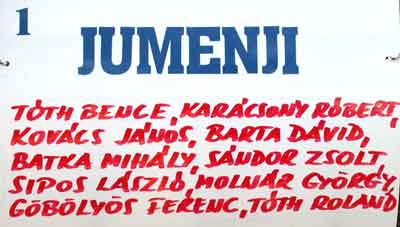 1
JUMENJI
TÓTH BENCE, KARÁCSONY RÓBERT,
KOVÁCS JÁNOS, BARTA DÁVID,
BATKA MIHÁLY, SÁNDOR ZSOLT,
SIPOS LÁSZLÓ, MOLNÁR GYÖRGY,
GÖBÖLYÖS FERENC, TÓTH ROLAND